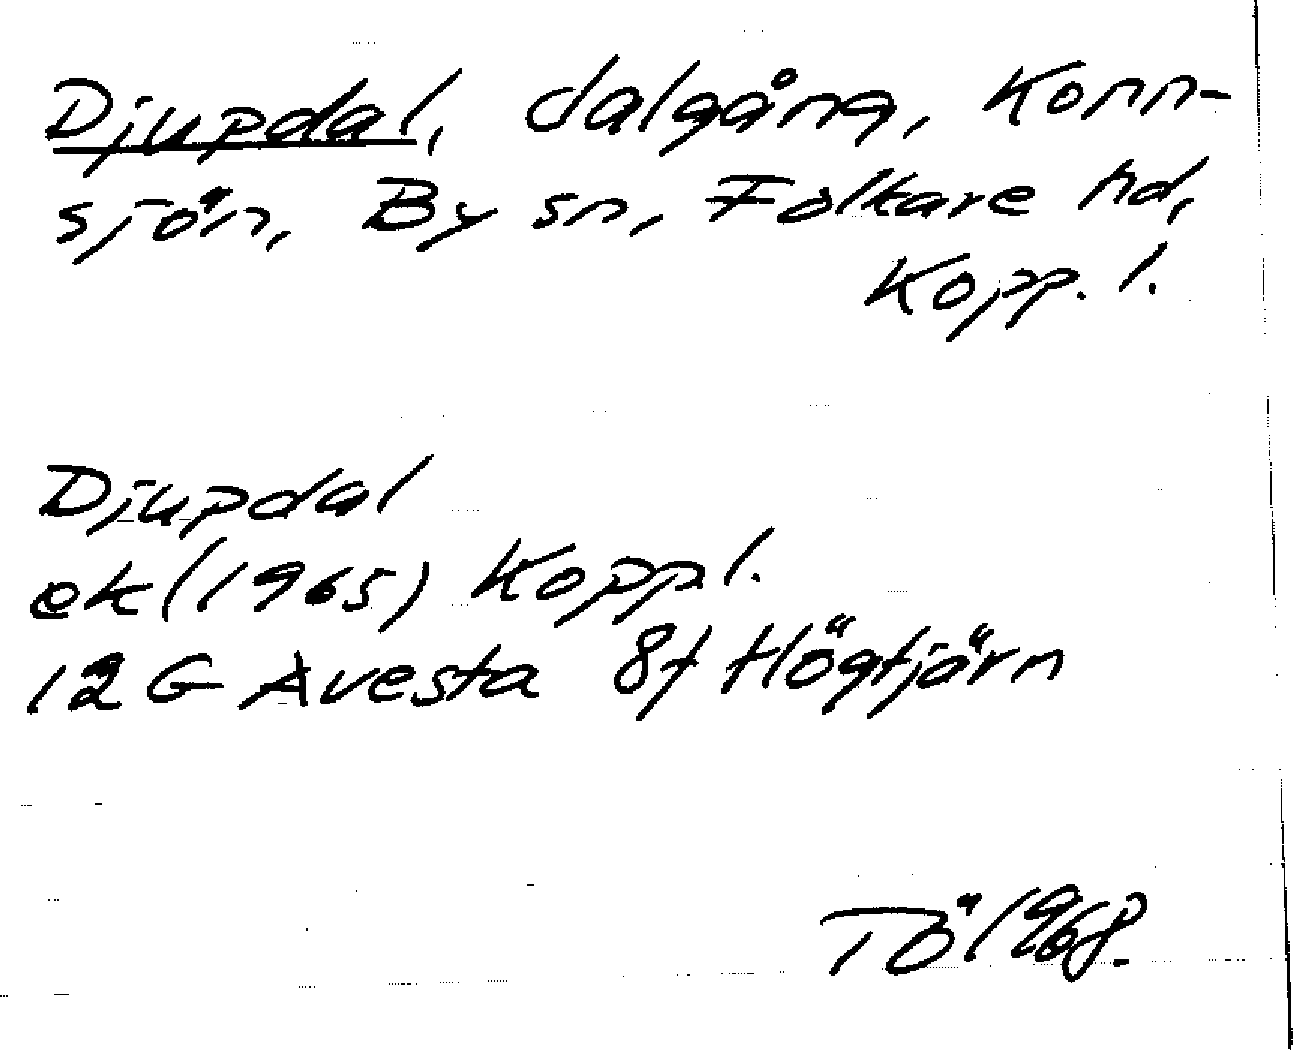 Djupdal, dalgång, Konn-
sjön, By sn, Folkare hd,
Kopp. l.
Djupdal
ek (1965) Koppl.
12 G Avesta 8f Högtjärn
TÖ 1968.